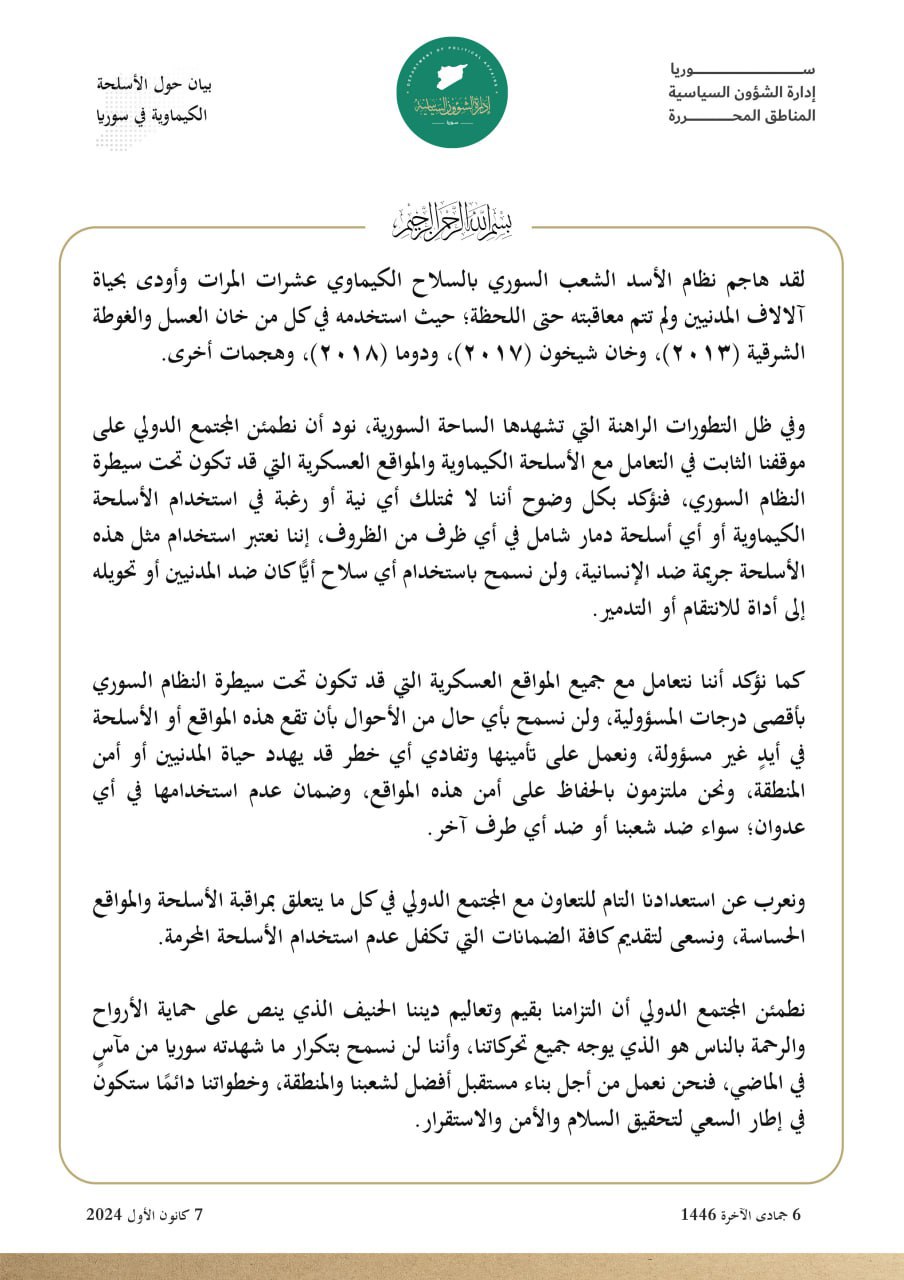 ســـــــــوريا
إدارة الشؤون السياسية
المناطق المحـــــــررة
DEPARTMENT OF POLITICAL AFFAIRS
إدارة الشؤون السياسية
سوريا
بيان حول الأسلحة
الكيماوية في سوريا
بسم الله الرحمن الرحيم
لقد هاجم نظام الأسد الشعب السوري بالسلاح الكيماوي عشرات المرات وأودى بحياة
آلالاف المدنيين ولم تتم معاقبته حتى اللحظة؛ حيث استخدمه في كل من خان العسل والغوطة
الشرقية (٢٠١٣)، وخان شيخون (٢٠١٧)، ودوما (٢٠١٨)، وهجمات أخرى.
وفي ظل التطورات الراهنة التي تشهدها الساحة السورية، نود أن نطمئن المجتمع الدولي على
موقفنا الثابت في التعامل مع الأسلحة الكيماوية والمواقع العسكرية التي قد تكون تحت سيطرة
النظام السوري، فنؤكد بكل وضوح أننا لا نمتلك أي نية أو رغبة في استخدام الأسلحة
الكيماوية أو أي أسلحة دمار شامل في أي ظرف من الظروف، إننا نعتبر استخدام مثل هذه
الأسلحة جريمة ضد الإنسانية، ولن نسمح باستخدام أي سلاح أيًّا كان ضد المدنيين أو تحويله
إلى أداة للانتقام أو التدمير.
كما نؤكد أننا نتعامل مع جميع المواقع العسكرية التي قد تكون تحت سيطرة النظام السوري
بأقصى درجات المسؤولية، ولن نسمح بأي حال من الأحوال بأن تقع هذه المواقع أو الأسلحة
في أيدٍ غير مسؤولة، ونعمل على تأمينها وتفادي أي خطر قد يهدد حياة المدنيين أو أمن
المنطقة، ونحن ملتزمون بالحفاظ على أمن هذه المواقع، وضمان عدم استخدامها في أي
عدوان؛ سواء ضد شعبنا أو ضد أي طرف آخر.
ونعرب عن استعدادنا التام للتعاون مع المجتمع الدولي في كل ما يتعلق بمراقبة الأسلحة والمواقع
الحساسة، ونسعى لتقديم كافة الضمانات التي تكفل عدم استخدام الأسلحة المحرمة.
نطمئن المجتمع الدولي أن التزامنا بقيم وتعاليم ديننا الحنيف الذي ينص على حماية الأرواح
والرحمة بالناس هو الذي يوجه جميع تحركاتنا، وأننا لن نسمح بتكرار ما شهدته سوريا من مآسٍ
في الماضي، فنحن نعمل من أجل بناء مستقبل أفضل لشعبنا والمنطقة، وخطواتنا دائمًا ستكون
في إطار السعي لتحقيق السلام والأمن والاستقرار.
6 جمادى الآخرة 1446
7 كانون الأول 2024